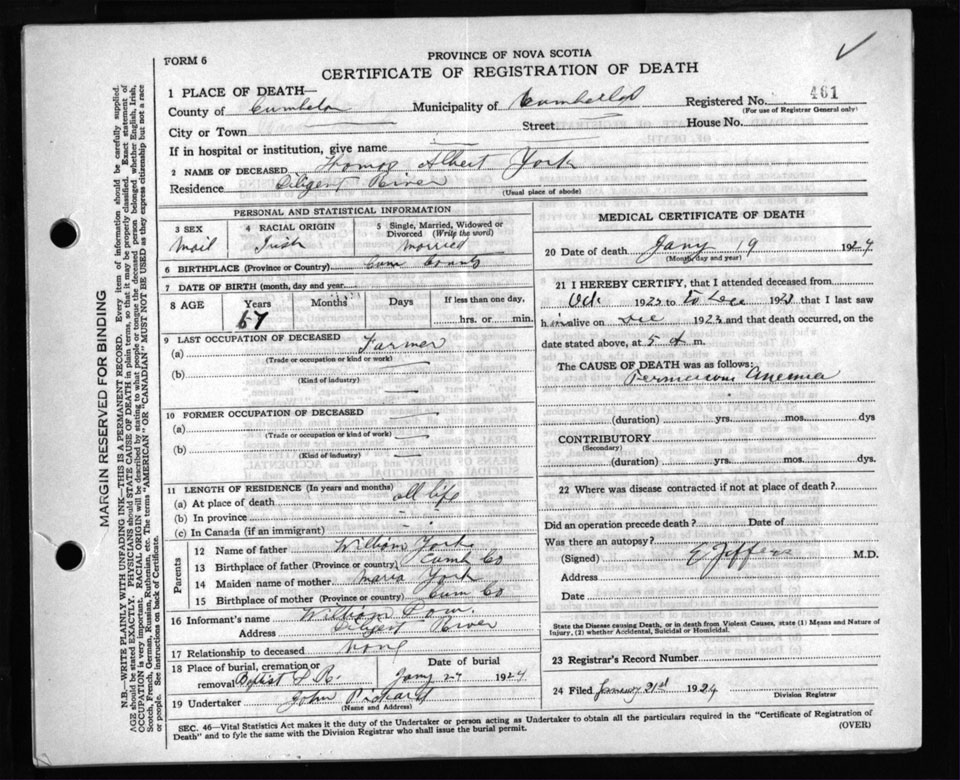 FORM 6
PROVINCE OF NOVA SCOTIA
CERTIFICATE OF REGISTRATION OF DEATH
1 PLACE OF DEATH—
County of Municipality of Registered No. 461
(For use of Registrar General only)
City or Town Street House No.
If in hospital or institution, give name
2 NAME OF DECEASED Thomas Albert York
Residence Diligent River
(Usual place of abode)
PERSONAL AND STATISTICAL INFORMATION
3 SEX
Mail
4 RACIAL ORIGIN
Irish
5 Single, Married, Widowed or Divorced (Write the word)
Married
6 BIRTHPLACE (Province or Country) Cum County
7 DATE OF BIRTH (month, day and year)
8 AGE Years Months Days If less than one day,
67 hrs. or min.
9 LAST OCCUPATION OF DECEASED
(a) Farmer
(Trade or occupation or kind or work)
(b)
(Kind of industry)
10 FORMER OCCUPATION OF DECEASED
(a)
(Trade or occupation or kind of work)
(b)
(Kind of industry)
11 LENGTH OF RESIDENCE (In years and months)
(a) At place of death all life
(b) In province
(c) In Canada (if an immigrant)
Parents
12 Name of father William York
13 Birthplace of father (Province or country) Cumb Co
14 Maiden name of mother Maria York
15 Birthplace of mother (Province or country) Cum Co
16 Informant's name William
Address River
17 Relationship to deceased None
18 Place of burial, cremation or removal Date of burial
Jany 1924
19 Undertaker John
(Name and Address)
MEDICAL CERTIFICATE OF DEATH
20 Date of death Jany 19 1924
(Month, day and year)
21 I HEREBY CERTIFY, that I attended deceased from
Oct 192 to 192 that I last saw
h alive on 1923 and that death occurred, on
date stated above, at 5 m.
The CAUSE OF DEATH was as follows:
Anemia
(duration) yrs. mos. dys
CONTRIBUTORY
(Secondary)
(duration) yrs. mos. dys.
22 Where was disease contracted if not at place of death?
Did an operation precede death? Date of
Was there an autopsy?
(Signed) E Jeffers M.D.
Address
Date
State the Disease causing Death, or in death from Violent Causes, state (1) Means and Nature of
Injury, (2) whether Accidental, Suicidal or Homicidal.
23 Registrar's Record Number
24 Filed January 21st 1924
Division Registrar
SEC. 46—Vital Statistics Act makes it the duty of the Undertaker or person acting as Undertaker to obtain all the particulars required in the "Certificate of Registration of
Death" and to fyle the same with the Division Registrar who shall issue the burial permit. (OVER)
MARGIN RESERVED FOR BINDING
N.B.—WRITE PLAINLY WITH UNFADING INK—THIS IS A PERMANENT RECORD. Every item of information should be carefully supplied.
AGE should be stated EXACTLY. PHYSICIANS should STATE CAUSE OF DEATH in plain terms, so that it may be properly classified. Exact statement of
OCCUPATION is very important. RACIAL ORIGIN will be described by stating to what people or tongue the deceased person belonged whether English, Irish,
Scotch, French, German, Russian, Ruthenian, etc. The terms "AMERICAN" OR "CANADIAN" MUST NOT BE USED as they express citizenship but not a race
or people. See instructions on back of Certificate.